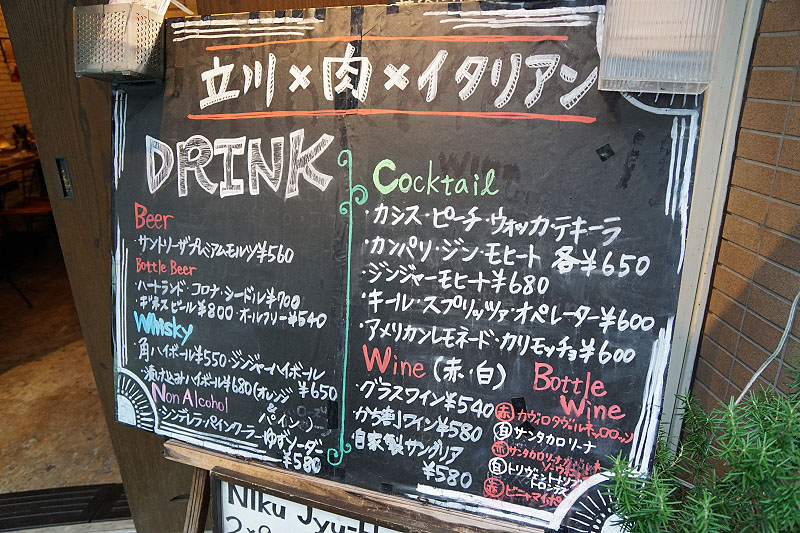 立川×肉×イタリアン
DRINK
Beer
・サントリーザプレミアムモルツ¥560
Bottle Beer
・ハートランド・コロナ・シードル¥700
・ギネスビール¥800・オールフリー¥540
Whisky
・角ハイボール¥550・ジンジャーハイボール
¥650
・漬け込みハイボール¥680(オレンジ
&
パイン)
Non Alcohol
・シンデレラ・パインクーラー・ゆずソーダー
¥580
Cocktail
・カシス・ピーチ・ウォッカ・テキーラ
・カンパリ・ジン・モヒート 各¥650
・ジンジャーモヒート¥680
・キール・スプリッツァ・オペレーター¥600
・アメリカンレモネード・カリモッチョ¥600
Wine (赤・白)
・グラスワイン¥540
・かち割りワイン¥580
・自家製サングリア
¥580
Bottle
Wine
赤
白 サンタカロリーナ
赤 サンタカロリーナ
白
赤
Niku